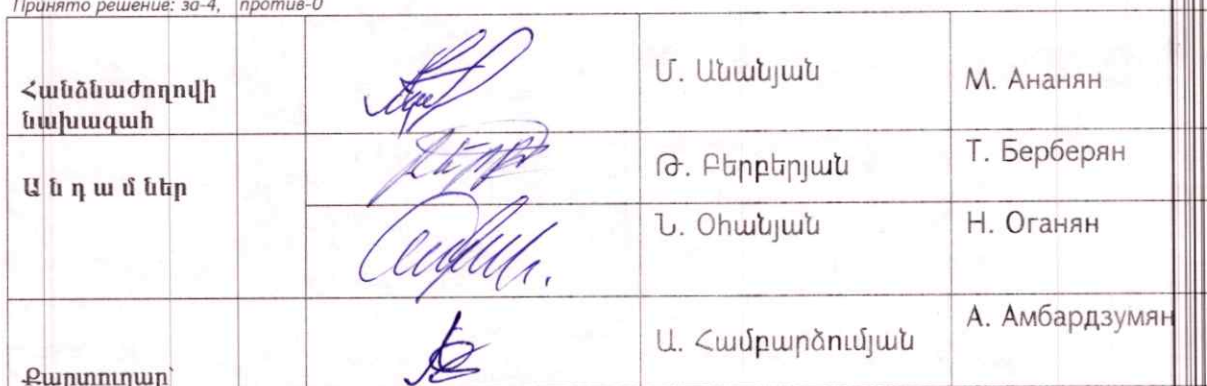 Принято решение: за-4, против-0
Հանձնաժողովի
նախագահ
Մ. Անանյան
М. Ананян
Ա ն դ ա մ ներ
Թ. Բերբերյան
Т. Берберян
Ն. Օհանյան
Н. Оганян
Քարտուղար՝
Ա. Համբարձումյան
А. Амбардзумян